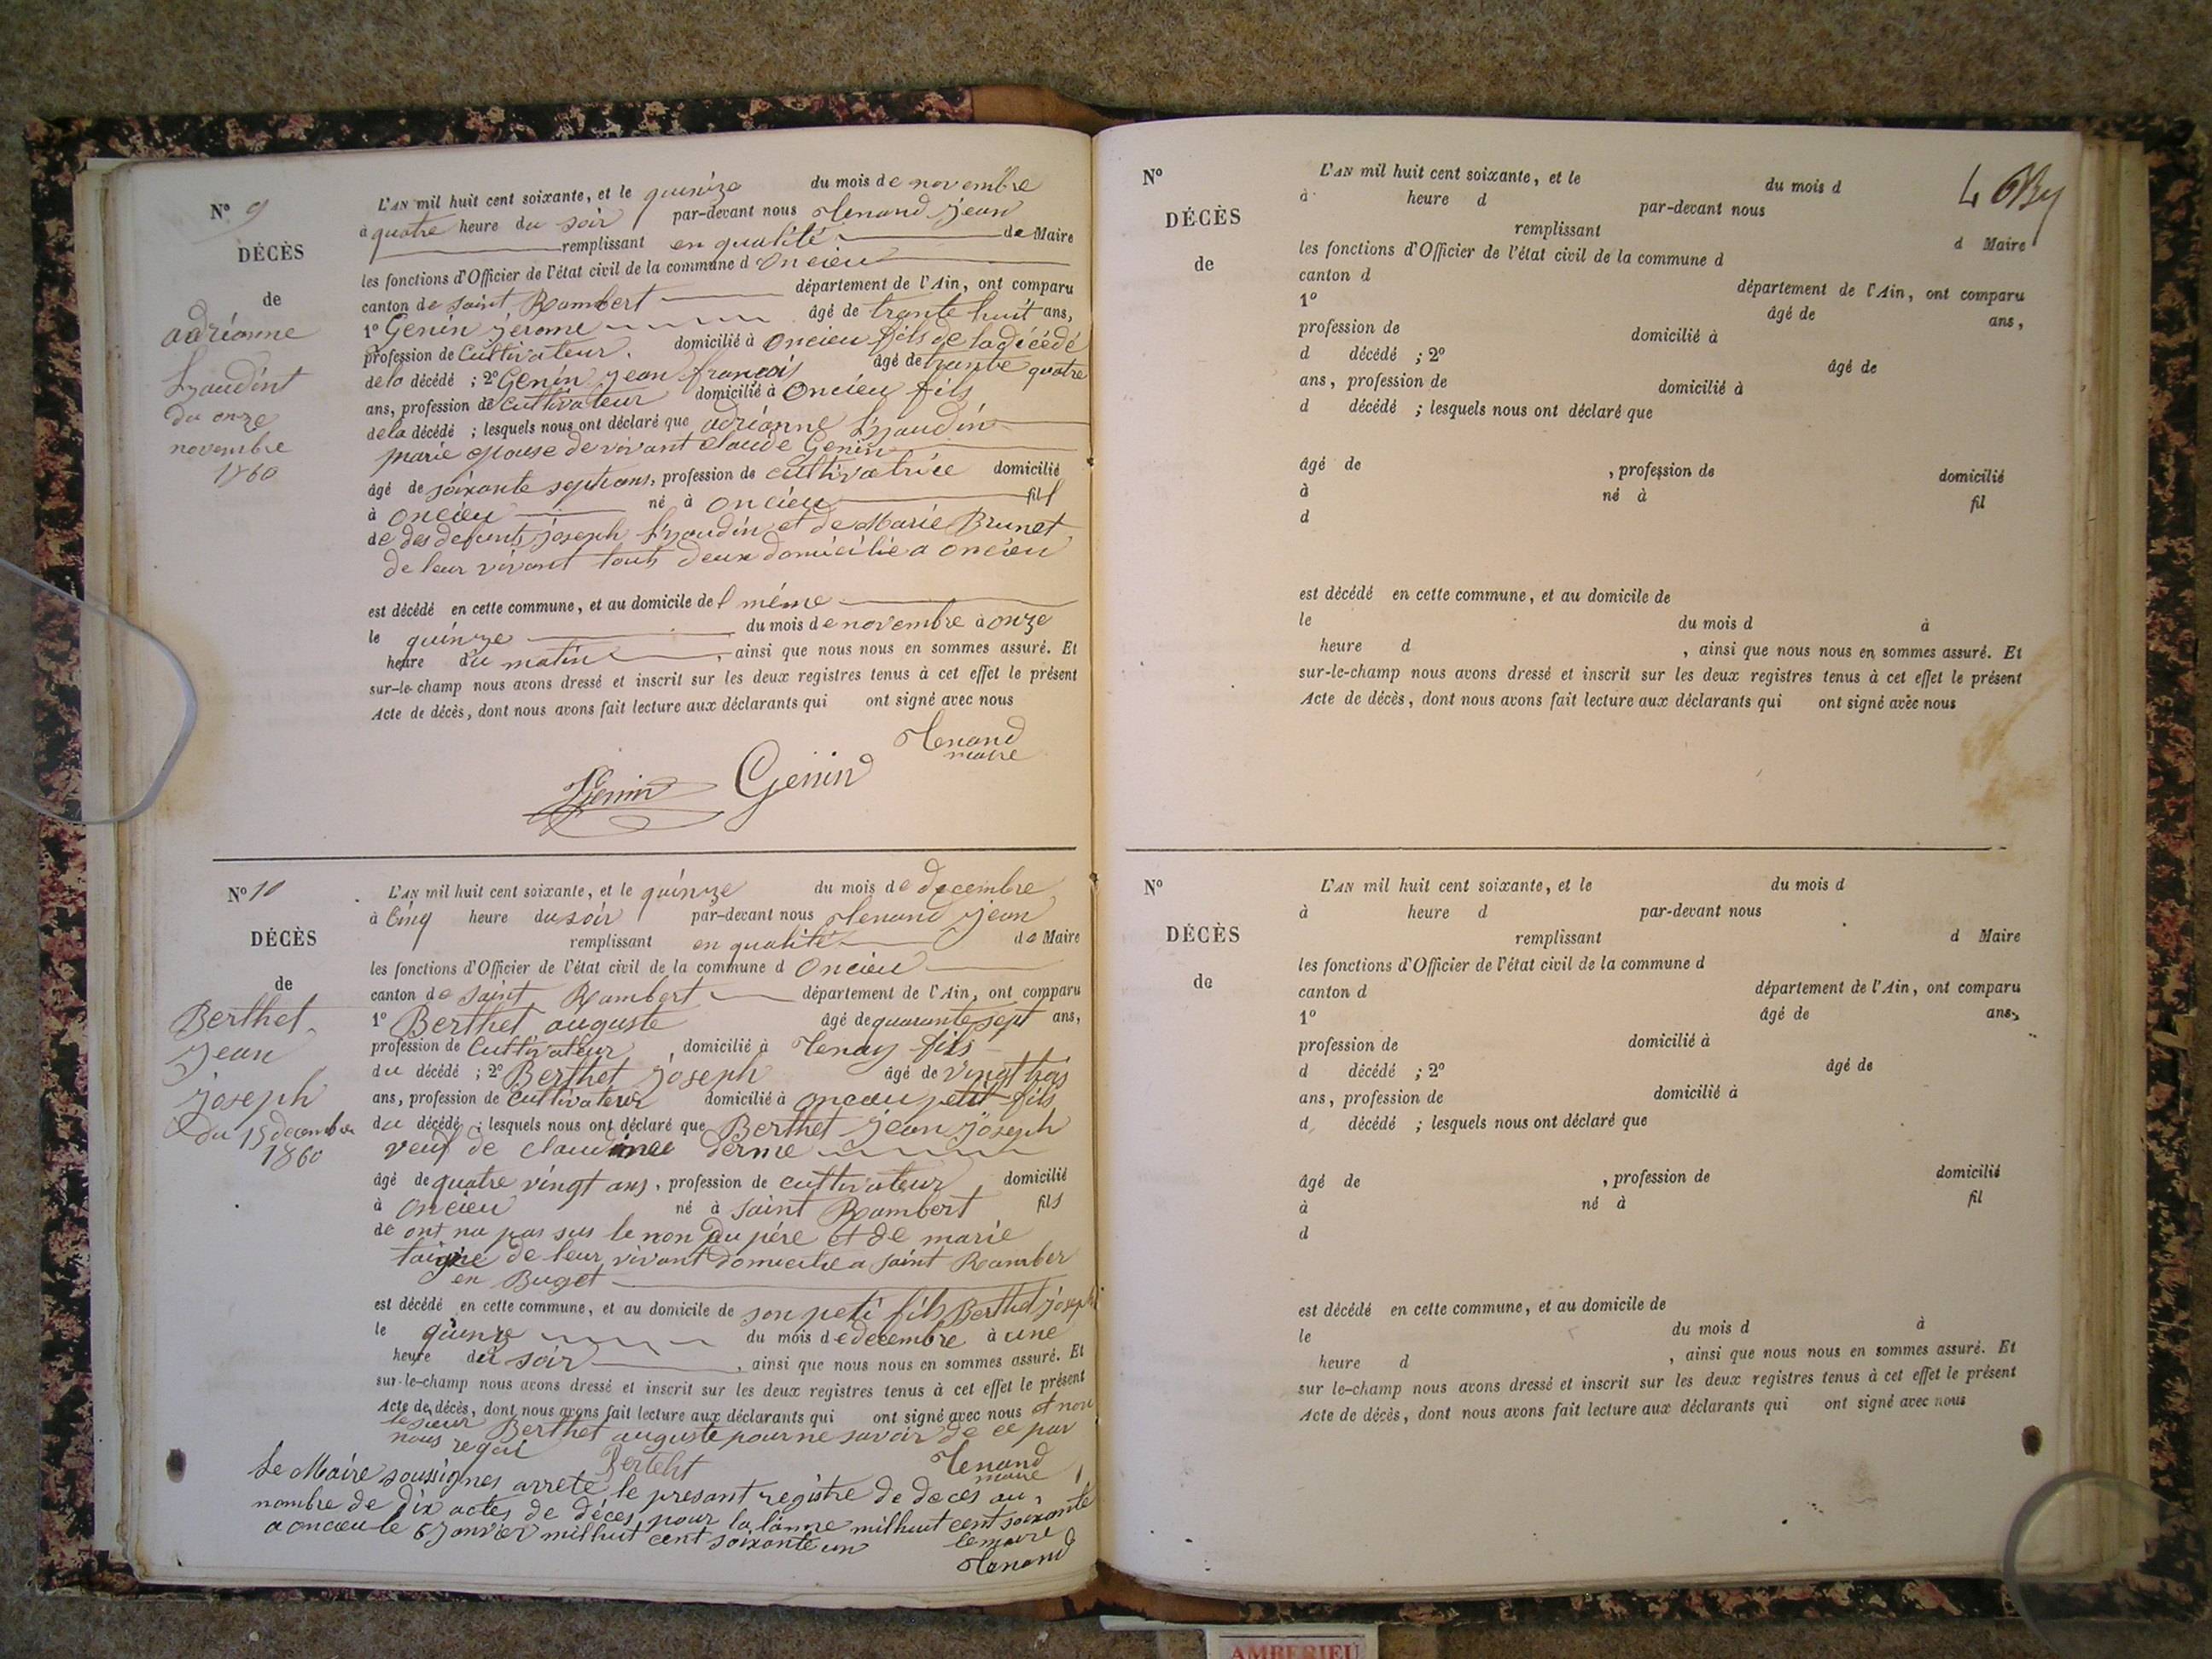 N° 9
DÉCÈS
de
adrianne
Lyaudint
du onze
novembre
1860
L'AN mil huit cent soixante, et le quinize du mois de novembre
à quatre heure du soir par-devant nous Tenand jean
remplissant en qualité de Maire
les fonctions d'Officier de l'état civil de la commune d oncieu
canton de saint Rambert département de l'Ain, ont comparu
1° Genin jérome âgé de trante huit ans,
profession de Cultivateur. domicilié à oncieu fils de la décédé
de la décédé ; 2° Genin jean françois âgé de trante quatre
ans, profession de Cultivateur domicilié à oncieu fils
de la décédé ; lesquels nous ont déclaré que adrianne Lyaudin
marie epouse de vivant claude Genin
âgé de soixante sept ans, profession de cultivatrice domicilié
à oncieu né à oncieu fill
de des defunts joseph Lyaudin et de Marie Brunet
de leur vivant touts deux domicilié a oncieu
est décédé en cette commune, et au domicile de l même
le quinze du mois de novembre à onze
heure du matin , ainsi que nous nous en sommes assuré. Et
sur-le-champ nous avons dressé et inscrit sur les deux registres tenus à cet effet le présent
Acte de décès, dont nous avons fait lecture aux déclarants qui ont signé avec nous
Tenand
maire
Genin Genin
N° 10
DÉCÈS
de
Berthet
jean
joseph
du 15 decembre
1860
L'AN mil huit cent soixante, et le quinze du mois de decembre
à Cinq heure du soir par-devant nous Tenand jean
remplissant en qualité de Maire
les fonctions d'Officier de l'état civil de la commune d oncieu
canton de saint Rambert département de l'Ain, ont comparu
1° Berthet auguste âgé de quarante sept ans,
profession de Cultivateur , domicilié à Tenay fils
du décédé ; 2° Berthet joseph âgé de vingt trois
ans, profession de Cultivateur domicilié à oncieu petit fils
du décédé ; lesquels nous ont déclaré que Berthet jean joseph
veuf de claudinee derme
âgé de quatre vingt ans, profession de cultivateur domicilié
à oncieu né à saint Rambert fils
de ont na pas sus le non du pére et de marie
de leur vivant domicilie a saint Ramber
en Buget
est décédé en cette commune, et au domicile de son peti fils Berthet joseph
le quinze du mois de decembre à une
heure du soir , ainsi que nous nous en sommes assuré. Et
sur-le-champ nous avons dressé et inscrit sur les deux registres tenus à cet effet le présent
Acte de décès, dont nous avons fait lecture aux déclarants qui ont signé avec nous et non
le sieur Berthet auguste pour ne savoir de ce par
nous requi
Berteht
Tenand
maire
Le Maire soussignes arrete le presant registre de deces au
nombre de dix actes de déces pour la lanne mil huit cent soixante
a oncieu le 6 janvier mil huit cent soixante un
le maire
Tenand
N°
DÉCÈS
de
L'AN mil huit cent soixante, et le du mois d
à heure d par-devant nous
remplissant d Maire
les fonctions d'Officier de l'état civil de la commune d
canton d département de l'Ain, ont comparu
1° âgé de ans,
profession de domicilié à
d décédé ; 2° âgé de
ans, profession de domicilié à
d décédé ; lesquels nous ont déclaré que
âgé de , profession de domicilié
à né à fil
d
est décédé en cette commune, et au domicile de
le du mois d à
heure d , ainsi que nous nous en sommes assuré. Et
sur-le-champ nous avons dressé et inscrit sur les deux registres tenus à cet effet le présent
Acte de décès, dont nous avons fait lecture aux déclarants qui ont signé avec nous
N°
DÉCÈS
de
L'AN mil huit cent soixante, et le du mois d
à heure d par-devant nous
remplissant d Maire
les fonctions d'Officier de l'état civil de la commune d
canton d département de l'Ain, ont comparu
1° âgé de ans,
profession de domicilié à
d décédé ; 2° âgé de
ans, profession de domicilié à
d décédé ; lesquels nous ont déclaré que
âgé de , profession de domicilié
à né à fil
d
est décédé en cette commune, et au domicile de
le du mois d à
heure d , ainsi que nous nous en sommes assuré. Et
sur le-champ nous avons dressé et inscrit sur les deux registres tenus à cet effet le présent
Acte de décès, dont nous avons fait lecture aux déclarants qui ont signé avec nous
AMBERIEU